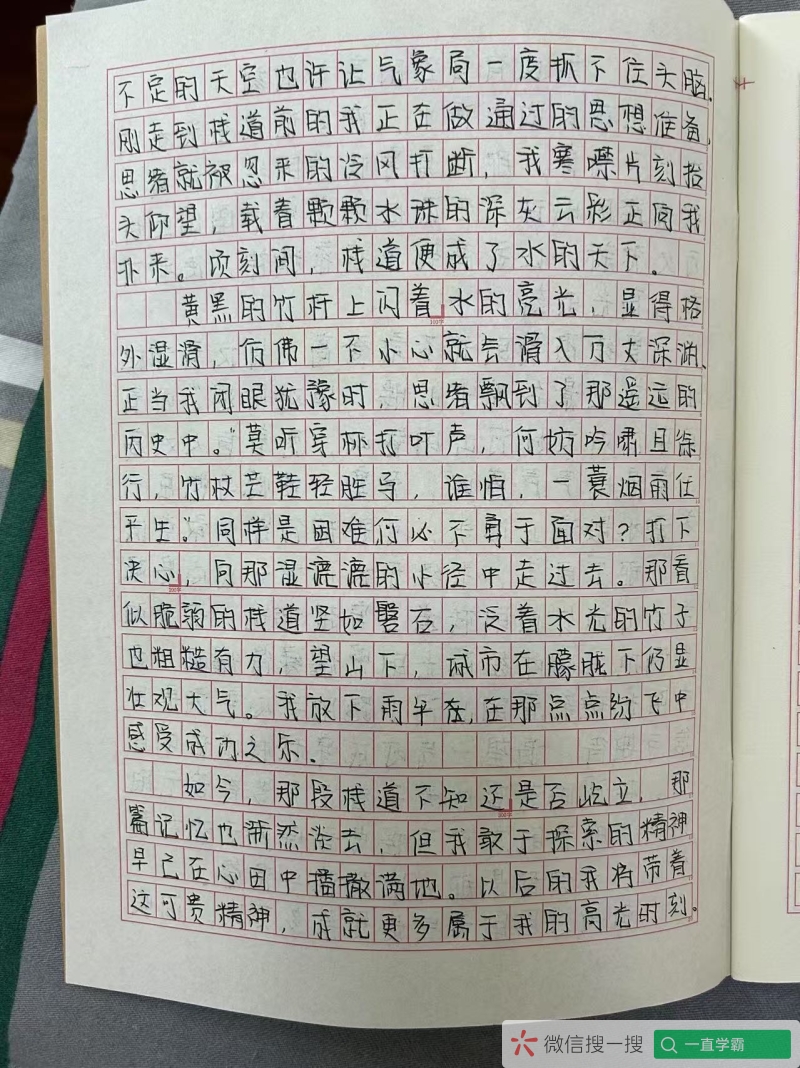 不定的天空也许让气象局一度抓不住头脑。
刚走到栈道前的我正在做通过的思想准备,
思绪就被忽来的冷风打断,我寒噤片刻抬
头仰望,载着颗颗水珠的深灰云彩正向我
扑来。顷刻间,栈道便成了水的天下。
黄黑的竹杆上闪着水的亮光,显得格
外湿滑,仿佛一不小心就会滑入万丈深渊。
正当我闭眼犹豫时,思绪飘到了那遥远的
历史中。“莫听穿林打叶声,何妨吟啸且徐
行,竹杖芒鞋轻胜马,谁怕,一蓑烟雨任
平生。”同样是困难何必不勇于面对?打下
决心,向那湿漉漉的小径中走过去。那看
似脆弱的栈道坚如磐石,泛着水光的竹子
也粗糙有力,望山下,城市在朦胧下仍显
壮观大气。我放下雨伞在,在那点点纷飞中
感受成功之乐。
如今,那段栈道不知还是否屹立,那
篇记忆也渐然淡去,但我敢于探索的精神
早已在心田中播撒满地。以后的我将带着
这可贵精神,成就更多属于我的高光时刻。
100字
200字
300字
微信搜一搜
一直学霸